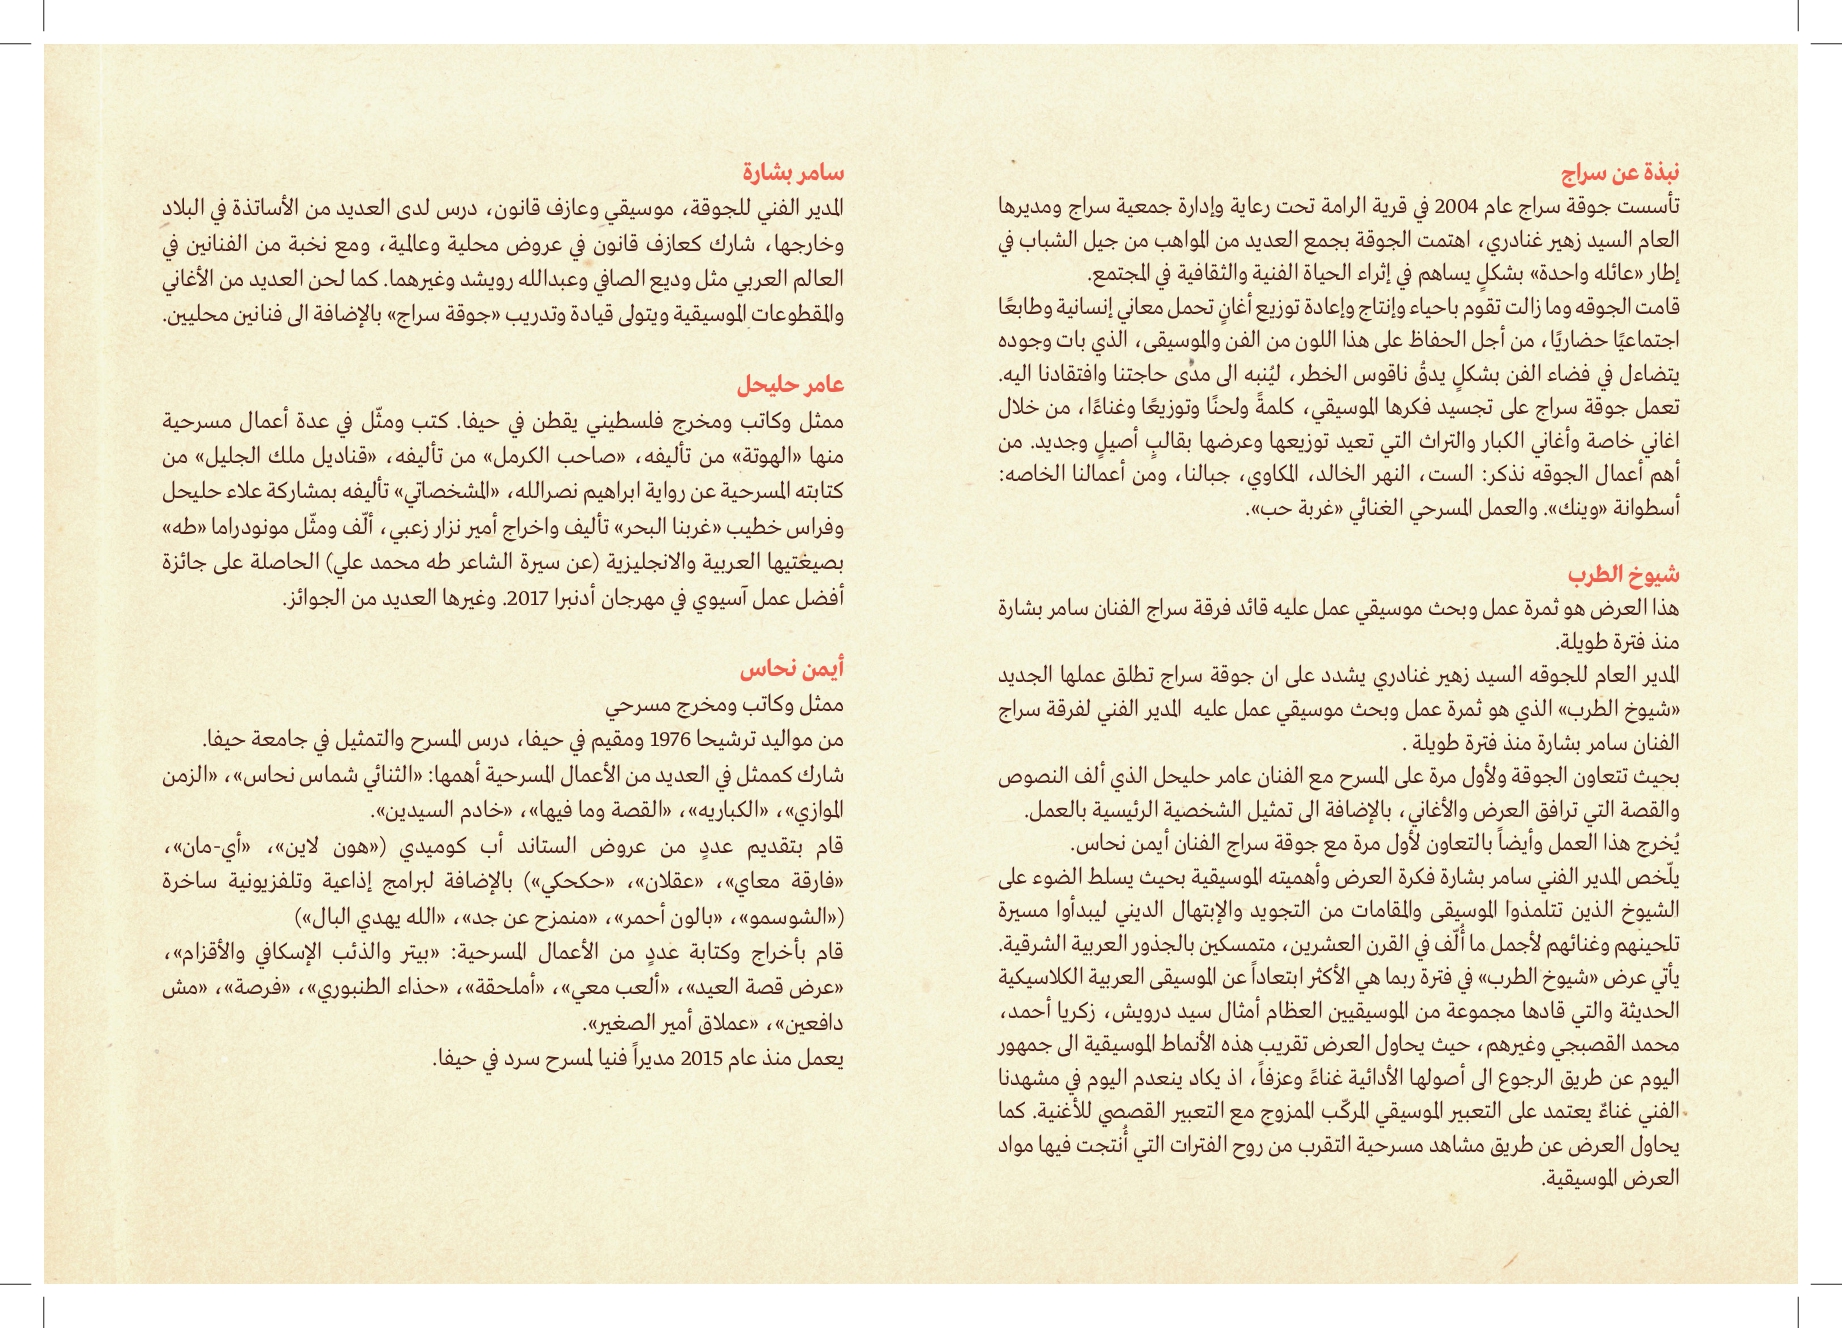 نبذة عن سراج
تأسست جوقة سراج عام 2004 في قرية الرامة تحت رعاية وإدارة جمعية سراج ومديرها
العام السيد زهير غنادري، اهتمت الجوقة بجمع العديد من المواهب من جيل الشباب في
إطار «عائله واحدة» بشكلٍ يساهم في إثراء الحياة الفنية والثقافية في المجتمع.
قامت الجوقه وما زالت تقوم باحياء وإنتاج وإعادة توزيع أغانٍ تحمل معاني إنسانية وطابعًا
اجتماعيًا حضاريًا، من أجل الحفاظ على هذا اللون من الفن والموسيقى، الذي بات وجوده
يتضاءل في فضاء الفن بشكلٍ يدقُ ناقوس الخطر، ليُنبه الى مدى حاجتنا وافتقادنا اليه.
تعمل جوقة سراج على تجسيد فكرها الموسيقي، كلمةً ولحنًا وتوزيعًا وغناءًا، من خلال
اغاني خاصة وأغاني الكبار والتراث التي تعيد توزيعها وعرضها بقالبٍ أصيلٍ وجديد. من
أهم أعمال الجوقه نذكر: الست، النهر الخالد، المكاوي، جبالنا، ومن أعمالنا الخاصه:
أسطوانة «وينك». والعمل المسرحي الغنائي «غربة حب».
شيوخ الطرب
هذا العرض هو ثمرة عمل وبحث موسيقي عمل عليه قائد فرقة سراج الفنان سامر بشارة
منذ فترة طويلة.
المدير العام للجوقه السيد زهير غنادري يشدد على ان جوقة سراج تطلق عملها الجديد
«شيوخ الطرب» الذي هو ثمرة عمل وبحث موسيقي عمل عليه  المدير الفني لفرقة سراج
الفنان سامر بشارة منذ فترة طويلة .
بحيث تتعاون الجوقة ولأول مرة على المسرح مع الفنان عامر حليحل الذي ألف النصوص
والقصة التي ترافق العرض والأغاني، بالإضافة الى تمثيل الشخصية الرئيسية بالعمل.
يُخرج هذا العمل وأيضاً بالتعاون لأول مرة مع جوقة سراج الفنان أيمن نحاس.
يلّخص المدير الفني سامر بشارة فكرة العرض وأهميته الموسيقية بحيث يسلط الضوء على
الشيوخ الذين تتلمذوا الموسيقى والمقامات من التجويد والإبتهال الديني ليبدأوا مسيرة
تلحينهم وغنائهم لأجمل ما أُلّف في القرن العشرين، متمسكين بالجذور العربية الشرقية.
يأتي عرض «شيوخ الطرب» في فترة ربما هي الأكثر ابتعاداً عن الموسيقى العربية الكلاسيكية
الحديثة والتي قادها مجموعة من الموسيقيين العظام أمثال سيد درويش، زكريا أحمد،
محمد القصبجي وغيرهم، حيث يحاول العرض تقريب هذه الأنماط الموسيقية الى جمهور
اليوم عن طريق الرجوع الى أصولها الأدائية غناءً وعزفاً، اذ يكاد ينعدم اليوم في مشهدنا
الفني غناءٌ يعتمد على التعبير الموسيقي المركّب الممزوج مع التعبير القصصي للأغنية. كما
يحاول العرض عن طريق مشاهد مسرحية التقرب من روح الفترات التي أُنتجت فيها مواد
العرض الموسيقية.
سامر بشارة
المدير الفني للجوقة، موسيقي وعازف قانون، درس لدى العديد من الأساتذة في البلاد
وخارجها، شارك كعازف قانون في عروض محلية وعالمية، ومع نخبة من الفنانين في
العالم العربي مثل وديع الصافي وعبدالله رويشد وغيرهما. كما لحن العديد من الأغاني
والمقطوعات الموسيقية ويتولى قيادة وتدريب «جوقة سراج» بالإضافة الى فنانين محليين.
عامر حليحل
ممثل وكاتب ومخرج فلسطيني يقطن في حيفا. كتب ومثّل في عدة أعمال مسرحية
منها «الهوتة» من تأليفه، «صاحب الكرمل» من تأليفه، «قناديل ملك الجليل» من
كتابته المسرحية عن رواية ابراهيم نصرالله، «المشخصاتي» تأليفه بمشاركة علاء حليحل
وفراس خطيب «غربنا البحر» تأليف واخراج أمير نزار زعبي، ألّف ومثّل مونودراما «طه»
بصيغتيها العربية والانجليزية (عن سيرة الشاعر طه محمد علي) الحاصلة على جائزة
أفضل عمل آسيوي في مهرجان أدنبرا 2017. وغيرها العديد من الجوائز.
أيمن نحاس
ممثل وكاتب ومخرج مسرحي
من مواليد ترشيحا 1976 ومقيم في حيفا، درس المسرح والتمثيل في جامعة حيفا.
شارك كممثل في العديد من الأعمال المسرحية أهمها: «الثنائي شماس نحاس»، «الزمن
الموازي»، «الكباريه»، «القصة وما فيها»، «خادم السيدين».
قام بتقديم عددٍ من عروض الستاند أب كوميدي («هون لاين»، «أي-مان»،
«فارقة معاي»، «عقلان»، «حكحكي») بالإضافة لبرامج إذاعية وتلفزيونية ساخرة
(«الشوسمو»، «بالون أحمر»، «منمزح عن جد»، «الله يهدي البال»)
قام بأخراج وكتابة عددٍ من الأعمال المسرحية: «بيتر والذئب الإسكافي والأقزام»،
«عرض قصة العيد»، «ألعب معي»، «أملحقة»، «حذاء الطنبوري»، «فرصة»، «مش
دافعين»، «عملاق أمير الصغير».
يعمل منذ عام 2015 مديراً فنيا لمسرح سرد في حيفا.